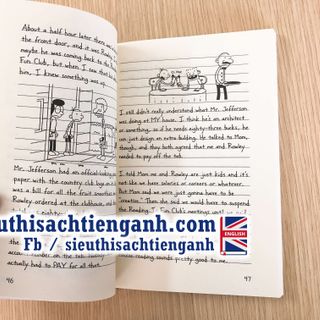 About a half hour later there was
the front door, and it was Rowley
maybe he was coming back to the
Fun Club, but when I saw that
him, I knew something was up
Mr. Jefferson had an official-looking
paper with the country club logo on
was a bill for all the fruit smoothies
Rowley ordered at the clubhouse, and
eighty-
account number on the tab
actually had to PAY for all that.
46
I still didn't really understand what Mr. Jefferson
was doing at MY house. I think he's an architect
or something, so if he needs eighty-three bucks, he
can just design an extra building. He talked to Mom,
though, and they both agreed that me and Rowley
needed to pay off the tab.
I told Mom me and Rowley are just kids and it's
not like we have salaries or careers or whatever.
But Mom said we were just gonna have to be
"creative." Then she said we would have to suspend
the Reading Is Fun Club's meetings until we
reading sounds pretty good to me.
47
uthisachtienganh.com
ENGLISH
Fb / sieuthisachtienganh